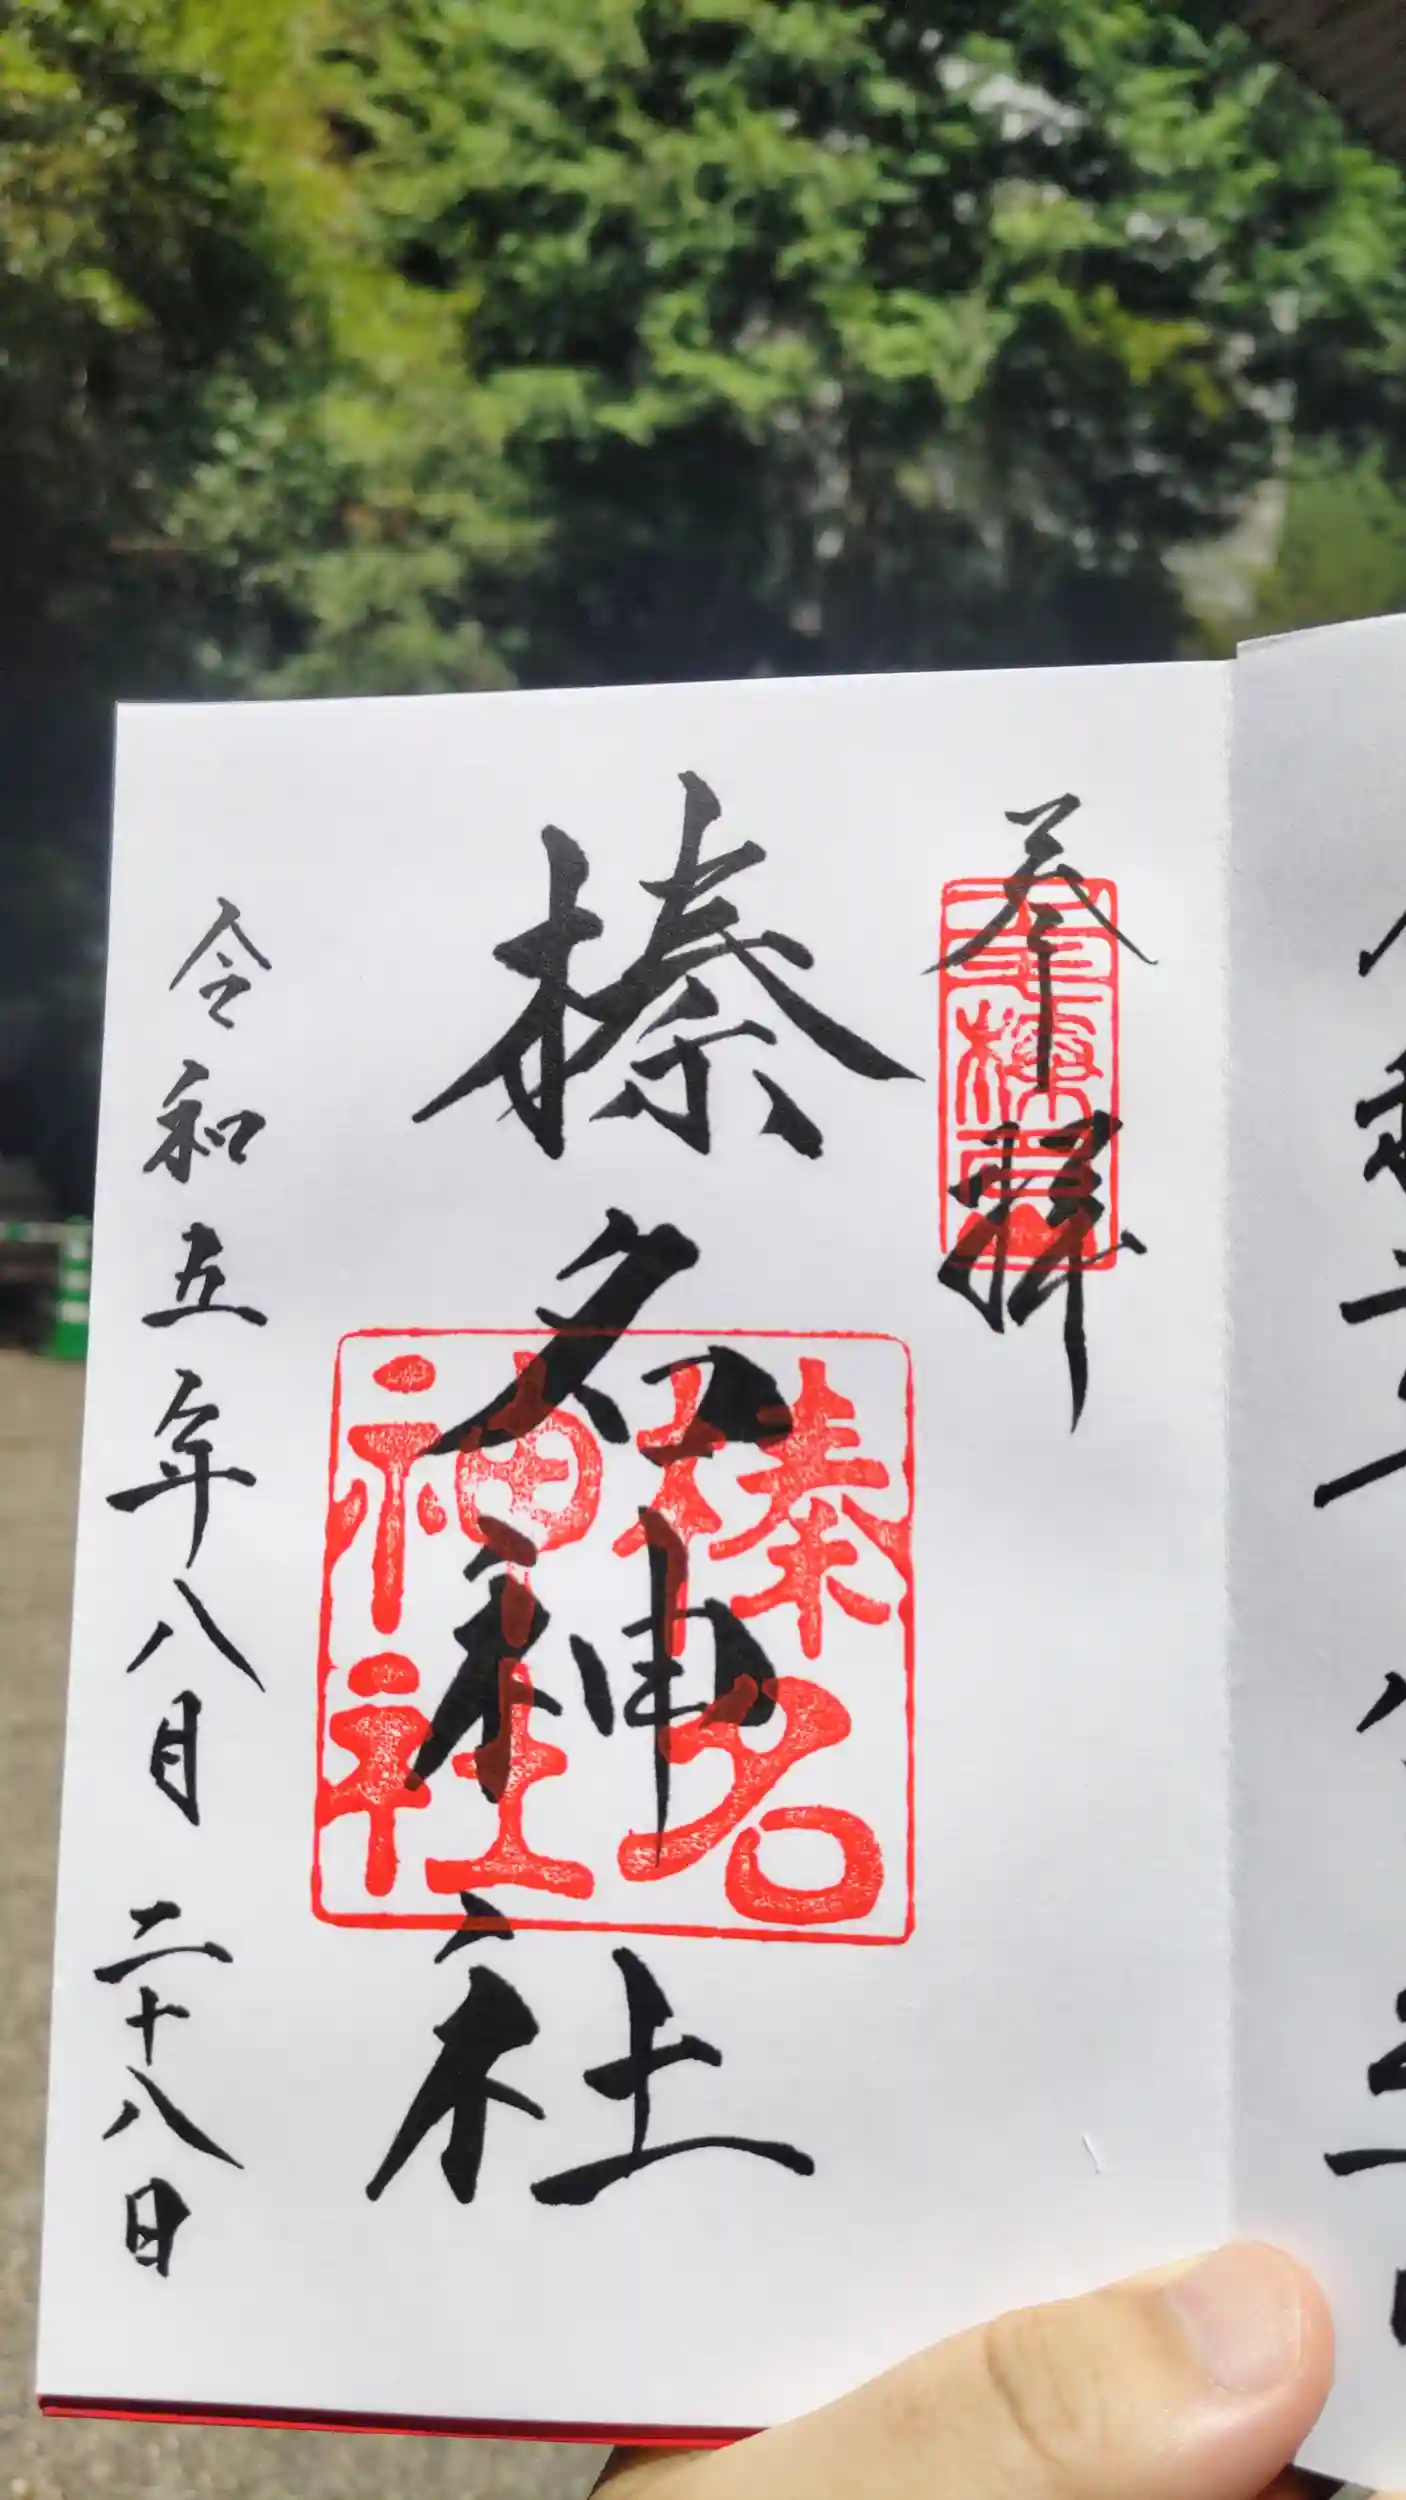 奉拝
榛名神社
榛名
神社
令和五年八月二十八日